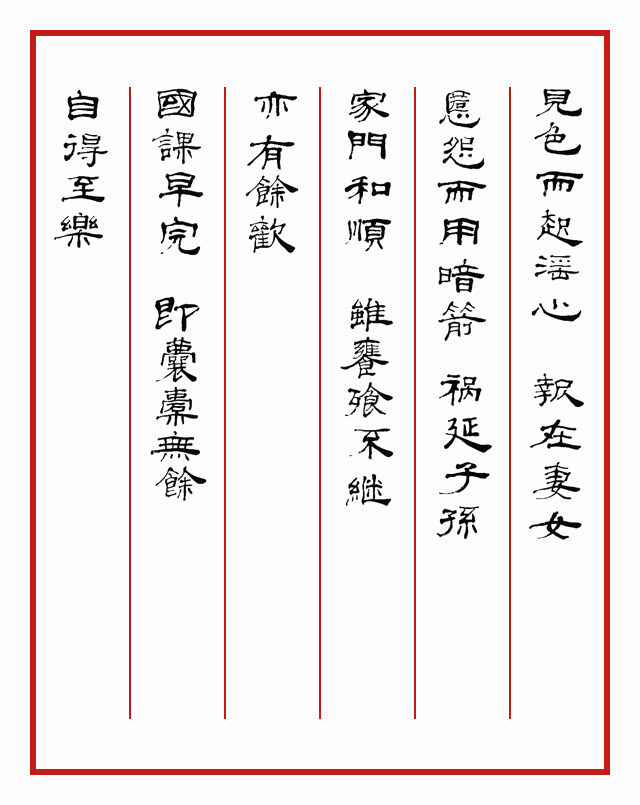 見色而起淫心　報在妻女
匿怨而用暗箭　祸延子孫
家門和順　雖饔飧不継
亦有餘歡
國課早完　即囊橐無餘
自得至樂